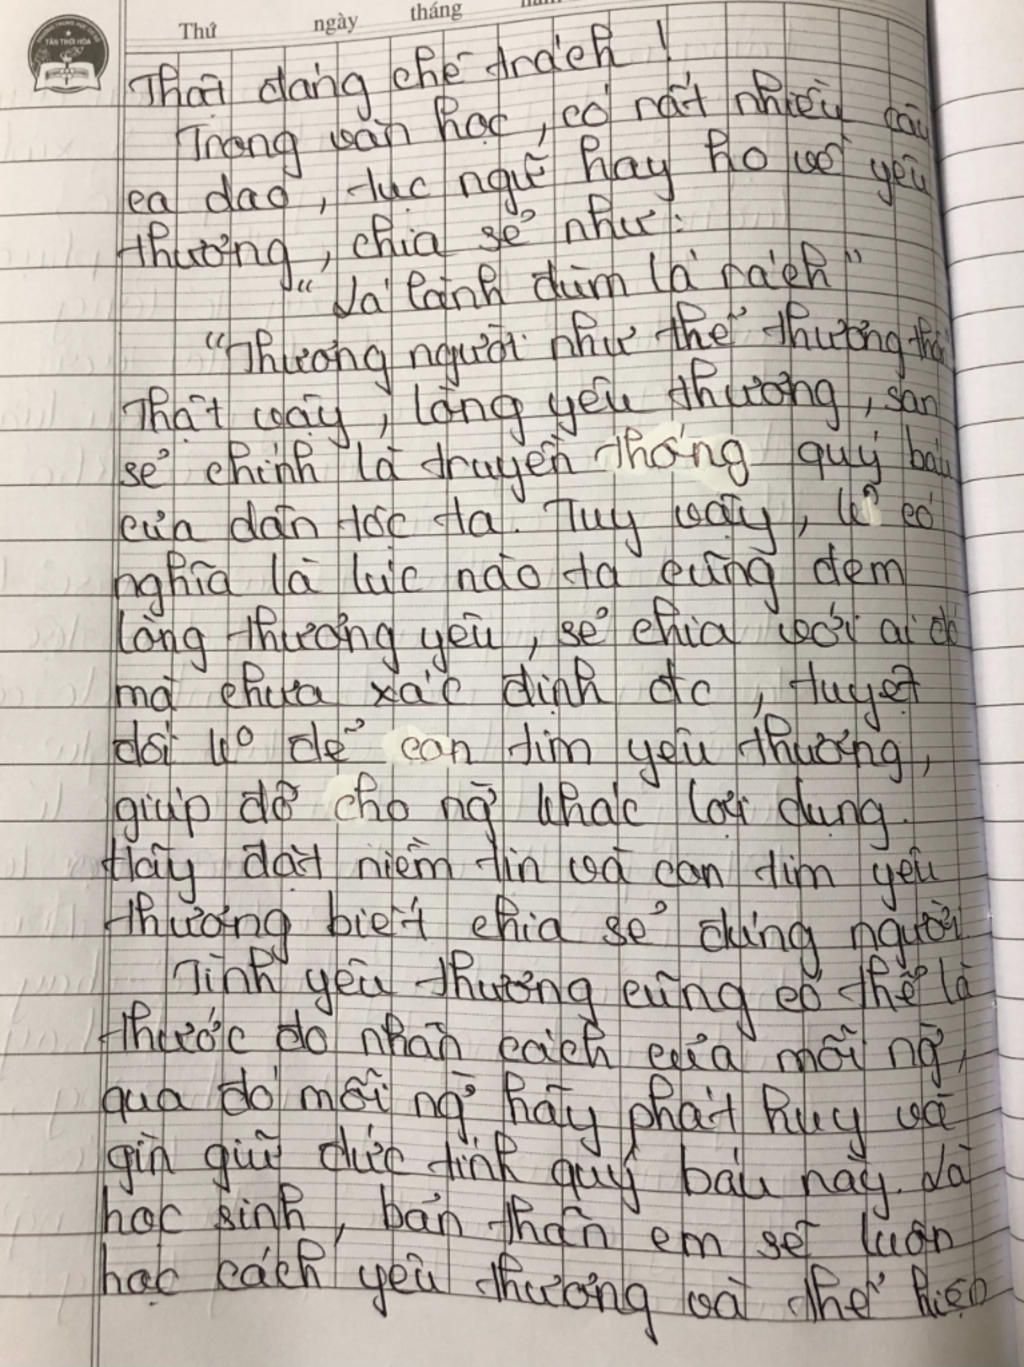 Thứ ngày tháng
TÂN THỚI HÒA
Thật đáng chê trách !
Trong văn học, có rất nhiều câu
ca dao, tục ngữ hay ho về yêu
thương, chia sẻ như:
"Lá lành đùm lá rách"
"Thương người như thể thương thâ
Thật vậy, lòng yêu thương, san
sẻ chính là truyền thống quý báu
của dân tộc ta. Tuy vậy, k° có
nghĩa là lúc nào ta cũng đem
lòng thương yêu, sẻ chia với ai đó
mà chưa xác định đc, tuyệt
đối k° để con tim yêu thương,
giúp đỡ cho ng` khác lợi dụng.
Hãy đặt niềm tin và con tim yêu
thương biết chia sẻ đúng người.
Tình yêu thương cũng có thể là
thước đo nhân cách của mỗi ng`,
qua đó mỗi ng` hãy phát huy và
gìn giữ đức tính quý báu này. Là
học sinh, bản thân em sẽ luôn
học cách yêu thương và thể hiện